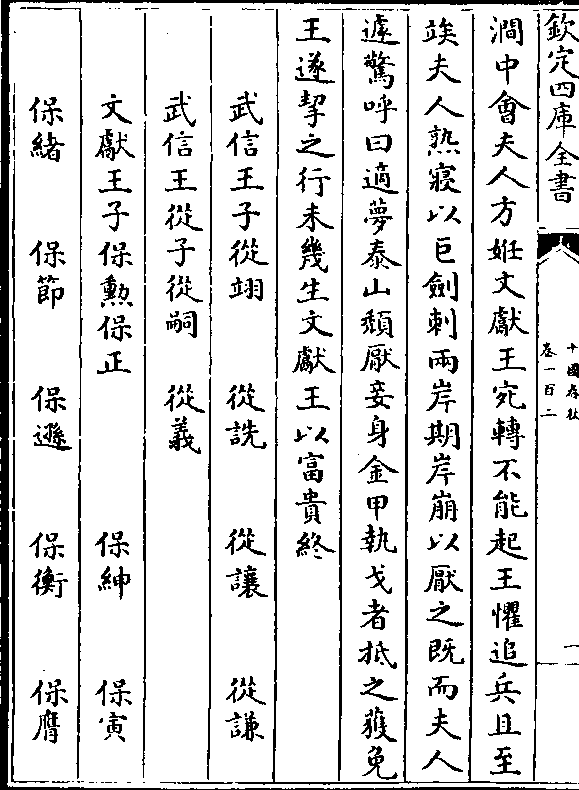 欽定四庫全書
十國春秋
卷一百二
一
澗中會夫人方姙文獻王宛轉不能起王懼追兵且至
竢夫人熟寢以巨劍刺兩岸期岸崩以厭之既而夫人
遽驚呼曰適夢泰山頽厭妾身金甲執戈者抵之獲免
王遂挈之行未幾生文獻王以富貴終
武信王子從翊 從詵 從讓 從謙
武信王從子從嗣 從義
文獻王子保勲保正 保紳 保寅
保緒 保節 保遜 保衡 保膺